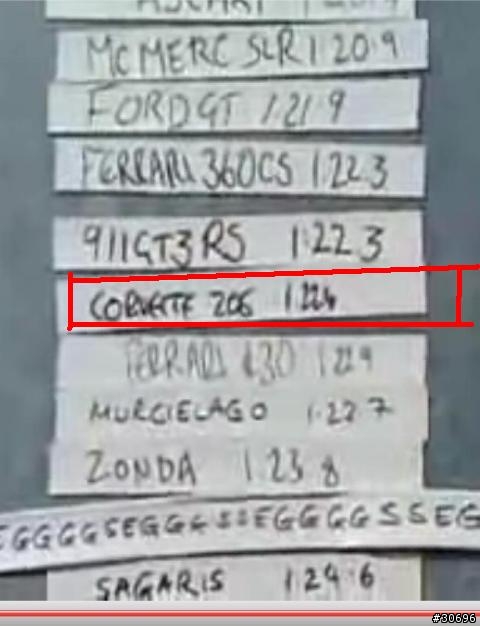 MC MERC SLR 1 20.9
FORD GT 1 21.9
FERRARI 360CS 1.22.3
911GT3 RS 1.22.3
CORVETTE Z06 1.22.4
FERRARI 430 1 22.9
MURCIELAGO 1.23 7
ZONDA 1.23 8
SAGARIS 1.24.6
#30696